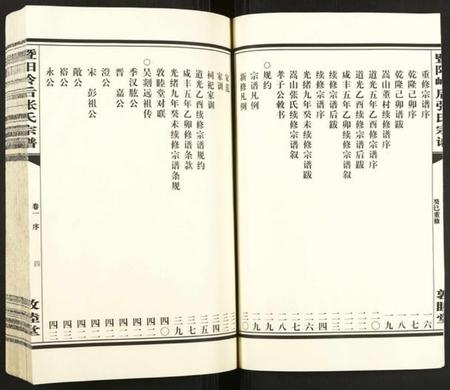 暨阳岭后张氏宗谱
癸巳重修
敦睦堂
重修宗谱序 一六
乾隆己卯序 一七
乾隆己卯谱跋 一八
嵩山董村续修谱序 一九
道光五年乙酉续修宗谱序 二〇
咸丰五年乙卯续修宗谱序
续修宗谱后跋
续修宗谱序
光绪九年癸未续修宗谱跋
嵩山张氏续修宗谱叙 二七
孝子公敕书 二八
○规约
宗谱凡例 二九
新修凡例 三〇
家训
祠祀家训
道光乙酉续修宗谱规约
咸丰五年乙卯续修宗谱条款
光绪九年癸未续修宗谱条规 三九
敦睦堂对联 四〇
○吴刻远祖传
季汉肱公
晋 嘉公
澄公
宋 彭祖公
敞公
裕公
永公
暨阳岭后张氏宗谱
卷一 序 四
敦睦堂